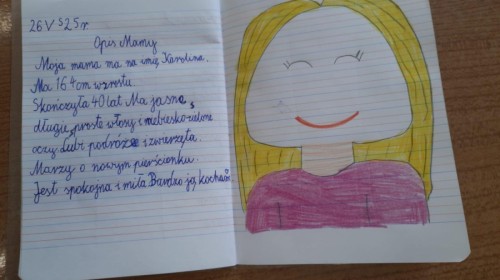 26 V 25 r
Opis Mamy
Moja mama ma na imię Karolina.
Ma 164cm wzrostu.
Skończyła 40 lat Ma jasne,
długie, proste włosy i niebiesko-zielone
oczy. Lubi podróże i zwierzęta.
Marzy o nowym pierścionku.
Jest spokojna i miła Bardzo ją kocham.